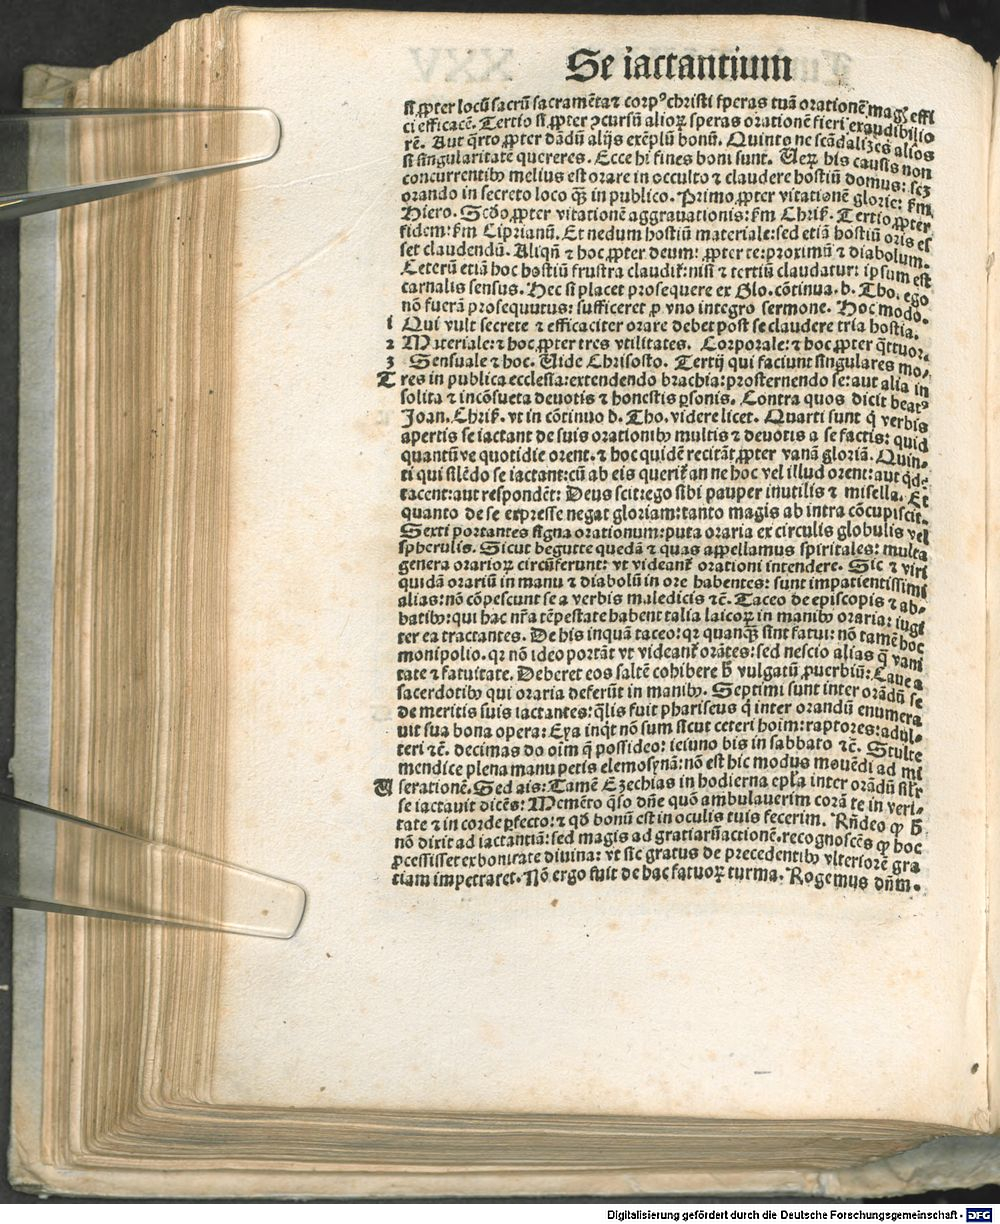 Se iactantium
si ꝓpter locū sacrū sacramēta ⁊ corpꝰ christi speras tuā orationē magꝭ effi
ci efficacē. Tertio si ꝓpter ↄcursū alioꝝ speras orationē fieri exaudibilio
rē. Aut q̄rto ꝓpter dādū alijs exēplū bonū. Quinto ne scādalizes alios
si singularitate quereres. Ecce hi fines boni sunt. Ueꝝ his causis non
concurrentibꝰ melius est orare in occulto ⁊ claudere hostiū domus: scꝫ
orando in secreto loco qꝫ in publico. Primo ꝓpter vitationē glorie: ẜm
Hiero. Scḋo ꝓpter vitationē aggrauationis: ẜm Chriẜ. Tertio ꝓpter
fidem: ẜm Ciprianū. Et nedum hostiū materiale: sed etiā hostiū oris es
set claudendū. Aliqn̄ ⁊ hoc ꝓpter deum: ꝓpter te: proximū ⁊ diabolum.
Ceterū etiā hoc hostiū frustra claudit̄: nisi ⁊ tertiū claudatur: ipsum est
carnalis sensus. Hec si placet prosequere ex Glo. cōtinua. b. Tho. ego
nō fuerā prosequutus: sufficeret ꝓ vno integro sermone. Hoc modo.
1 Qui vult secrete ⁊ efficaciter orare debet post se claudere tria hostia.
2 Materiale: ⁊ hoc ꝓpter tres vtilitates. Corporale: ⁊ hoc ꝓpter q̄ttuor.
3 Sensuale ⁊ hoc. Uide Chrisosto. Tertij qui faciunt singulares mo/
T res in publica ecclesia: extendendo brachia: prosternendo se: aut alia in
solita ⁊ incōsueta deuotis ⁊ honestis ꝑsonis. Contra quos dicit beatꝰ
Joan. Chriẜ. vt in cōtinuo b. Tho. videre licet. Quarti sunt q̇ verbis
apertis se iactant de suis orationibꝰ multis ⁊ deuotis a se factis: quid
quantū ve quotidie orent. ⁊ hoc quidē recitāt ꝓpter vanā gloriā. Quin/
ti qui silēdo se iactant: cū ab eis querit̄ an ne hoc vel illud orent: aut q̇dē
tacent: aut respondēt: Deus scit: ego sibi pauper inutilis ⁊ misella. Et
quanto de se expresse negat gloriam: tanto magis ab intra cōcupiscit.
Sexti portantes signa orationum: puta oraria ex circulis globulis vel
spherulis. Sicut begutte quedā ⁊ quas appellamus spiritales: multa
genera orarioꝝ circūferunt: vt videant̄ orationi intendere. Sic ⁊ viri
quidā orariū in manu ⁊ diabolū in ore habentes: sunt impatientissimi
alias: nō cōpescunt se a verbis maledicis ⁊c̄. Taceo de episcopis ⁊ ab/
batibꝰ: qui hac nr̄a tēpestate habent talia laicoꝝ in manibꝰ oraria: iugi
ter ea tractantes. De his inquā taceo: qꝛ quanqꝫ sint fatui: nō tamē hoc
monipolio. qꝛ nō ideo portāt vt videant̄ orātes: sed nescio alias q̄ vani
tate ⁊ fatuitate. Deberet eos saltē cohibere h̄ vulgatū ꝓuerbiū: Caue a
sacerdotibꝰ qui oraria deferūt in manibꝰ. Septimi sunt inter orādū se
de meritis suis iactantes: q̄lis fuit phariseus q̇ inter orandū enumera
uit sua bona opera: Eya inq̇t nō sum sicut ceteri hoim: raptores: adul/
teri ⁊c̄. decimas do oīm q̄ possideo: ieiuno bis in sabbato ⁊c̄. Stulte
mendice plena manu petis elemosynā: nō est hic modus mouēdi ad mi
U serationē. Sed ais: Tamē Ezechias in hodierna epl̄a inter orādū sil̄r
se iactauit dicēs: Memēto q̄so dn̄e quō ambulauerim corā te in veri/
tate ⁊ in corde ꝑfecto: ⁊ qḋ bonū est in oculis tuis fecerim. Rn̄deo ꝙ h̄
nō dixit ad iactantiā: sed magis ad gratiarūactionē. recognoscēs ꝙ hoc
ꝓcessisset ex bonitate diuina: vt sic gratus de precedentibꝰ vlteriorē gra
tiam impetraret. Nō ergo fuit de hac fatuoꝝ turma. Rogemus dn̄m.
Digitalisierung gefördert durch die Deutsche Forschungsgemeinschaft - DFG